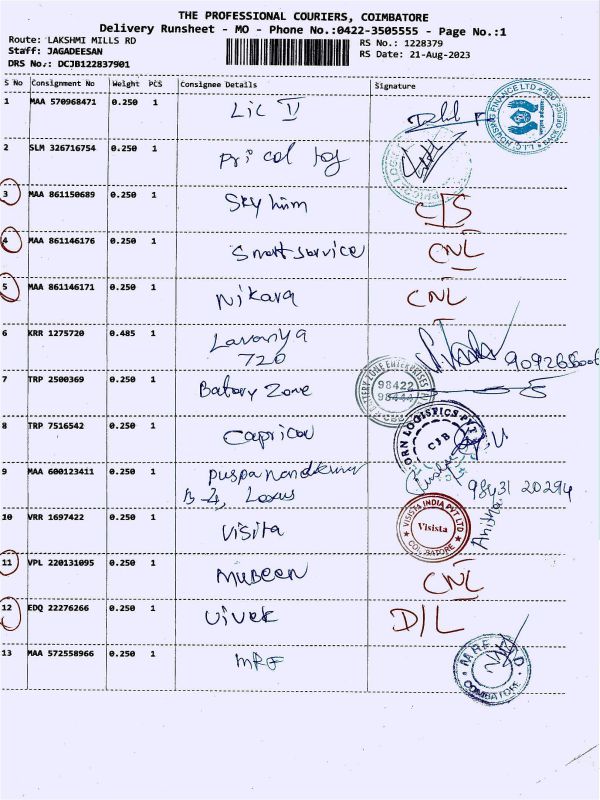 THE PROFESSIONAL COURIERS, COIMBATORE
Delivery Runsheet - MO - Phone No.:0422-3505555 - Page No.:1
Route: LAKSHMI MILLS RD
RS No.: 1228379
Staff: JAGADEESAN
RS Date: 21-Aug-2023
DRS No.: DCJB122837901
S No Consignment No Weight PCS Consignee Details Signature
1 MAA 570968471 0.250 1 Lic II
2 SLM 326716754 0.250 1 Pricol
3 MAA 861150689 0.250 1 C/S
4 MAA 861146176 0.250 1 Smart service CNL
5 MAA 861146171 0.250 1 Nikara CNL
6 KRR 1275720 0.485 1 Lavanya
720
7 TRP 2500369 0.250 1 Batary Zone
98422
98444
8 TRP 7516542 0.250 1 Capricon
CJB
9 MAA 600123411 0.250 1
B-4, Lexus
98431 20294
10 VRR 1697422 0.250 1 Visita
VISISTA INDIA PVT LTD
Visista
COIMBATORE
Anitha
11 VPL 220131095 0.250 1 Mubeen CNL
12 EDQ 22276266 0.250 1 Vivek D/L
13 MAA 572558966 0.250 1 MRF
COIMBATORE